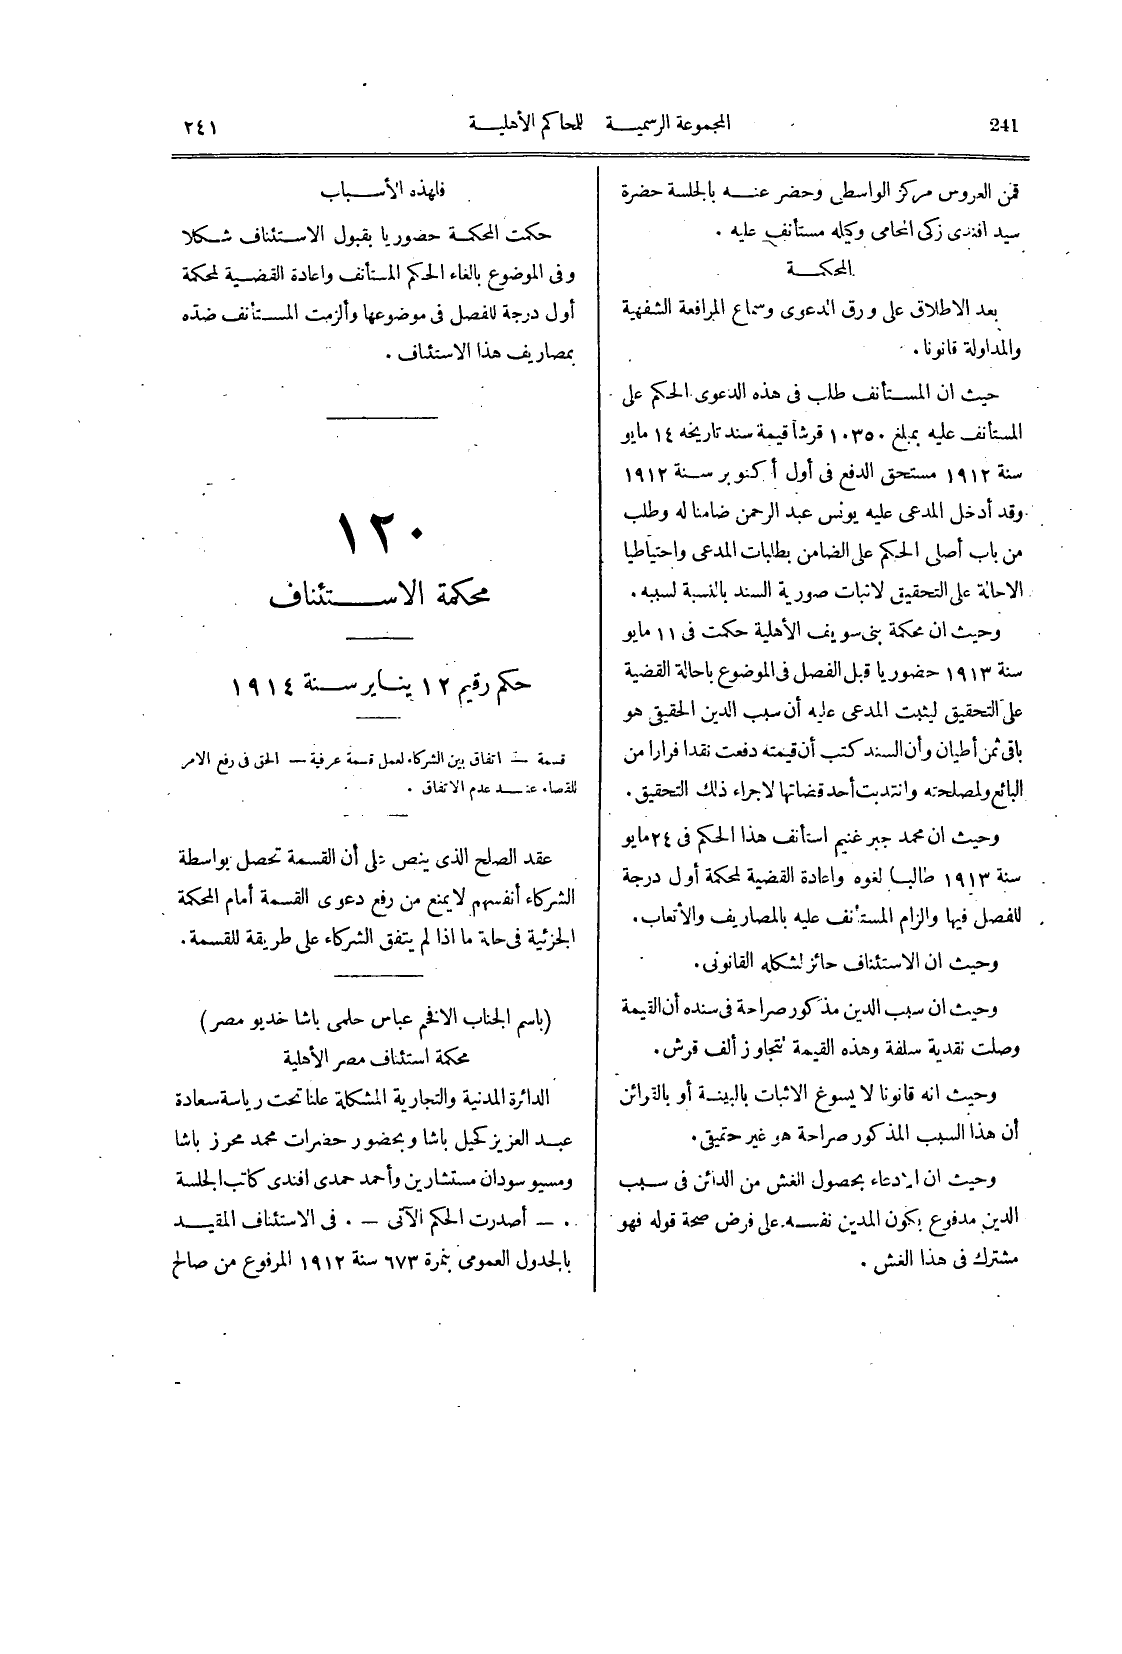 241
المجموعة الرسمية للمحاكم الأهلية
٢٤١
قمن العروس مركز الواسطى وحضر عنه بالجلسة حضرة
سيد افندى زكى المحامى وكيله مستأنف عليه .
المحكمة
بعد الاطلاق على ورق الدعوى وسماع المرافعة الشفهية
والمداولة قانونا .
حيث ان المستأنف طلب فى هذه الدعوى الحكم على
المستأنف عليه بمبلغ ١٠٣٥٠ قرشا قيمة سند تاريخه ١٤ مايو
سنة ١٩١٢ مستحق الدفع فى أول أكتوبر سنة ١٩١٢
وقد أدخل المدعى عليه يونس عبد الرحمن ضامنا له وطلب
من باب أصلى الحكم على الضامن بطلبات المدعى واحتياطيا
الاحالة على التحقيق لاثبات صورية السند بالنسبة لسببه .
وحيث ان محكمة بنى سويف الأهلية حكمت فى ١١ مايو
سنة ١٩١٣ حضوريا قبل الفصل فى الموضوع باحالة القضية
على التحقيق ليثبت المدعى عليه أن سبب الدين الحقيقى هو
باقى ثمن أطيان وأن السند كتب أن قيمته دفعت نقدا فرارا من
البائع ولمصلحته وانتدبت أحد قضاتها لاجراء ذلك التحقيق .
وحيث ان محمد جبر غنيم استأنف هذا الحكم فى ٢٤ مايو
سنة ١٩١٣ طالبا لغوه واعادة القضية لمحكمة أول درجة
للفصل فيها والزام المستأنف عليه بالمصاريف والأتعاب .
وحيث ان الاستئناف حائز لشكله القانونى .
وحيث ان سبب الدين مذكور صراحة فى سنده أن القيمة
وصلت نقدية سلفة وهذه القيمة تتجاوز ألف قرش .
وحيث انه قانونا لا يسوغ الاثبات بالبينة أو بالقرائن
أن هذا السبب المذكور صراحة هو غير حقيقى .
وحيث ان الادعاء بحصول الغش من الدائن فى سبب
الدين مدفوع بكون المدين نفسه على فرض صحة قوله فهو
مشترك فى هذا الغش .
فلهذه الأسباب
حكمت المحكمة حضوريا بقبول الاستئناف شكلا
وفى الموضوع بالغاء الحكم المستأنف واعادة القضية لمحكمة
أول درجة للفصل فى موضوعها وألزمت المستأنف ضده
بمصاريف هذا الاستئناف .
١٢٠
محكمة الاستئناف
حكم رقيم ١٢ يناير سنة ١٩١٤
قسمة — اتفاق بين الشركاء لعمل قسمة عرفية — الحق فى رفع الامر
للقضاء عند عدم الاتفاق .
عقد الصلح الذى ينص على أن القسمة تحصل بواسطة
الشركاء أنفسهم لا يمنع من رفع دعوى القسمة أمام المحكمة
الجزئية فى حالة ما اذا لم يتفق الشركاء على طريقة للقسمة .
(باسم الجناب الافخم عباس حلمى باشا خديو مصر)
محكمة استئناف مصر الأهلية
الدائرة المدنية والتجارية المشكلة علنا تحت رياسة سعادة
عبد العزيز كحيل باشا وبحضور حضرات محمد محرز باشا
ومسيو سودان مستشارين وأحمد حمدى افندى كاتب الجلسة
. — أصدرت الحكم الآتى — . فى الاستئناف المقيد
بالجدول العمومى بنمرة ٦٧٣ سنة ١٩١٢ المرفوع من صالح